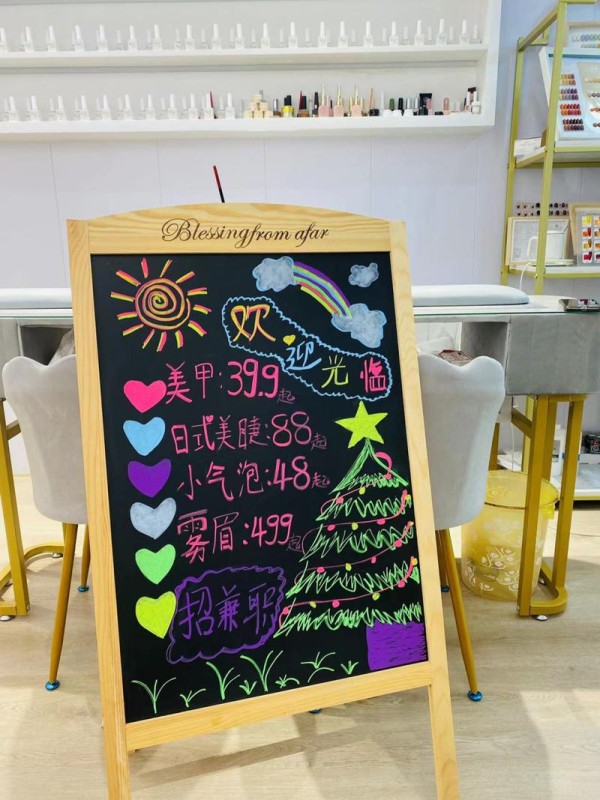 Blessing from afar
欢迎光临
美甲:39.9起
日式美睫:88起
小气泡:48起
雾眉:499起
招兼职